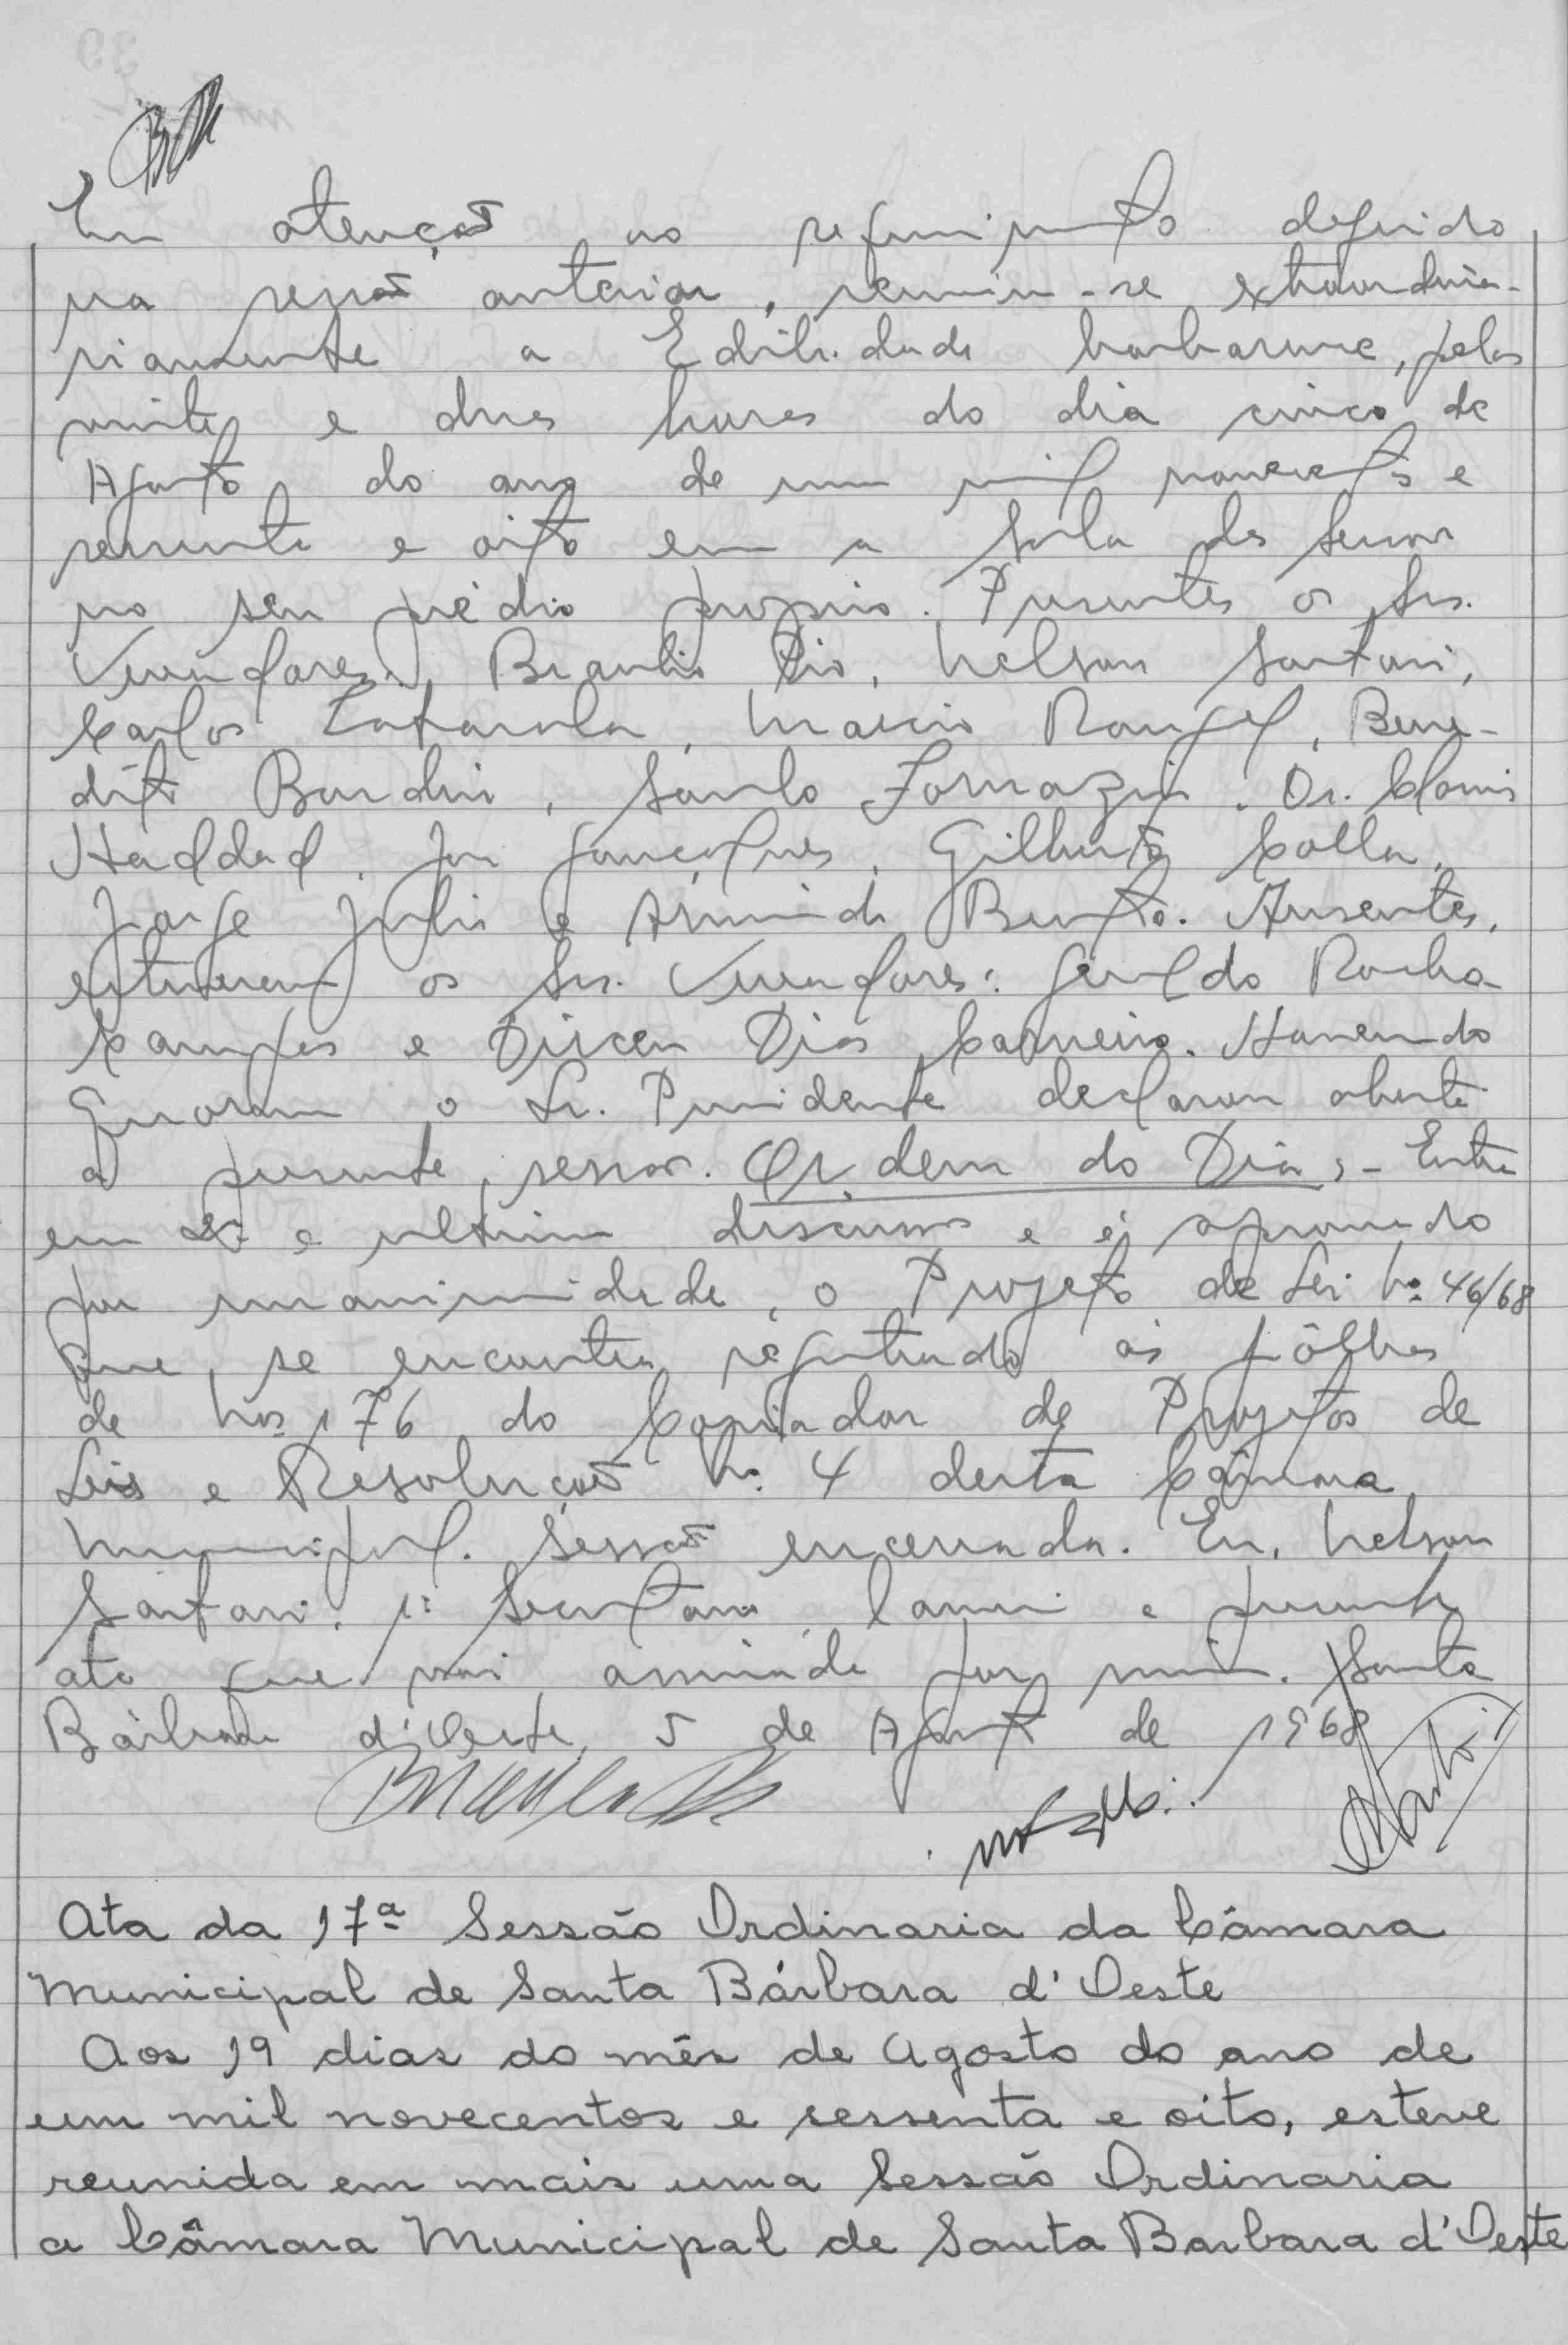 Em atenção ao requerimento deferido
na sessão anterior, reuniu-se extraordina-
riamente a Edilidade barbarense, pelas
vinte e duas horas do dia cinco de
Agosto do ano de um mil novecentos e
sessenta e oito em a Sala de Sessões
no seu prédio proprio. Presentes os Srs.
Vereadores: Braulio Pio, Nelson Sartori,
Carlos Matarolla, Marcio Rangel, Bene-
dito Bardini, Santo Fornazin, Dr. Clovis
Haddad, José Gonçalves, Gilberto Colla,
Jorge Julio e Armindo Bento. Ausentes,
estiveram os Srs. Vereadores: Geraldo Rocha
Campos e Dirceu Dias Carneiro. Havendo
Quorum o Sr. Presidente declarou aberta
a presente sessão. Ordem do Dia, - Entra
em 2ª e ultima discussão e é aprovado
por unanimidade, o Projeto de Lei Nº 46/68
que se encontra registrado às fôlhas
de Nos 176 do Copiador de Projetos de
Leis e Resolução Nº 4 desta Câmara
Municipal. Sessão encerrada. Eu, Nelson
Sartori, 1º Secretario lavrei a presente
ata que vai assinada por mim. Santa
Bárbara d'Oeste, 5 de Agosto de 1968
Ata da 17ª Sessão Ordinaria da Câmara
Municipal de Santa Bárbara d'Oeste
Aos 19 dias do mês de Agosto do ano de
um mil novecentos e sessenta e oito, esteve
reunida em mais uma Sessão Ordinaria
a Câmara Municipal de Santa Barbara d'Oeste